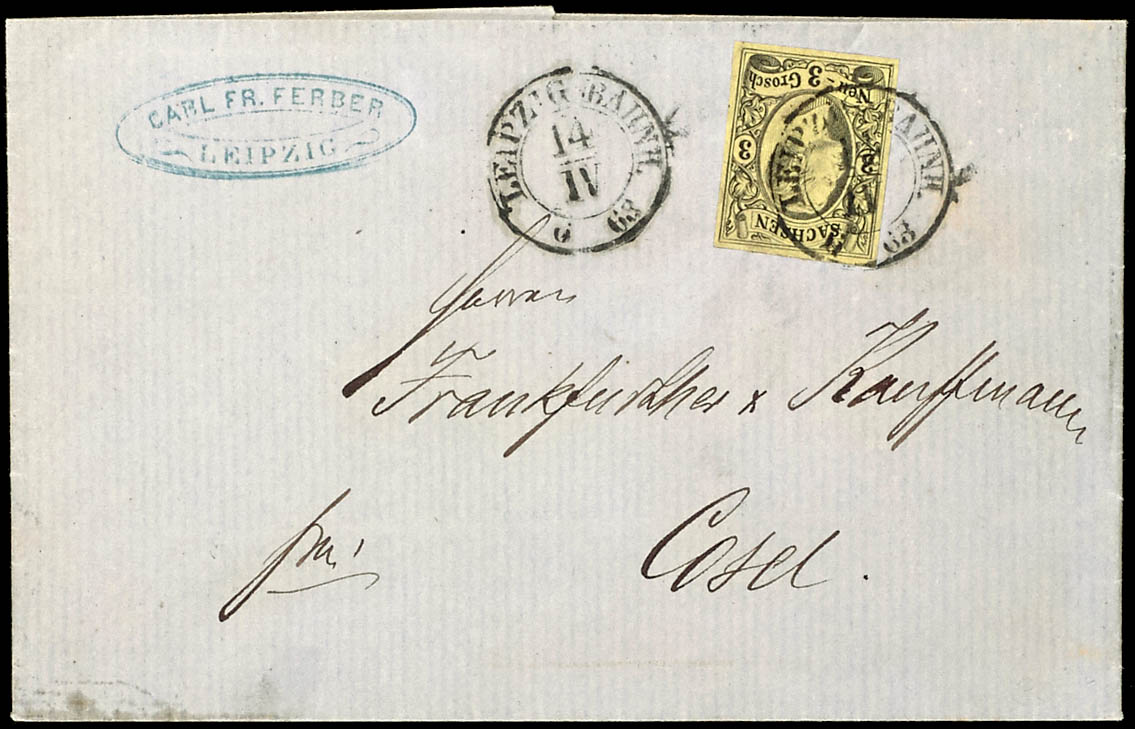 CARL FR. FERBER
LEIPZIG
LEIPZIG BAHNH.
14
IV
6 63
Neu - 3 Grosch
3 3
SACHSEN
LEIPZIG BAHNH.
IV
63
Herren
Frankfurther & Kauffmann
frei
Cosel.